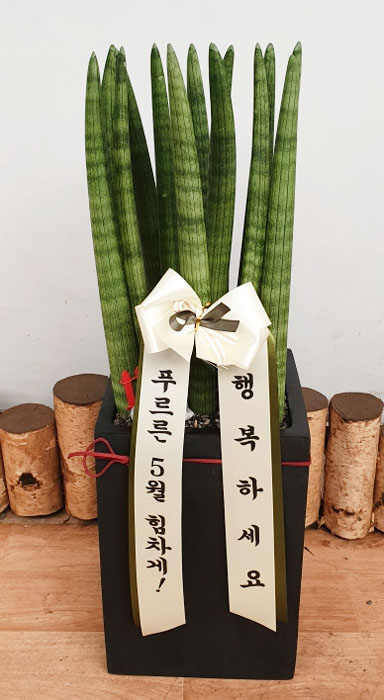 푸르른 5월 힘차게!
행복하세요